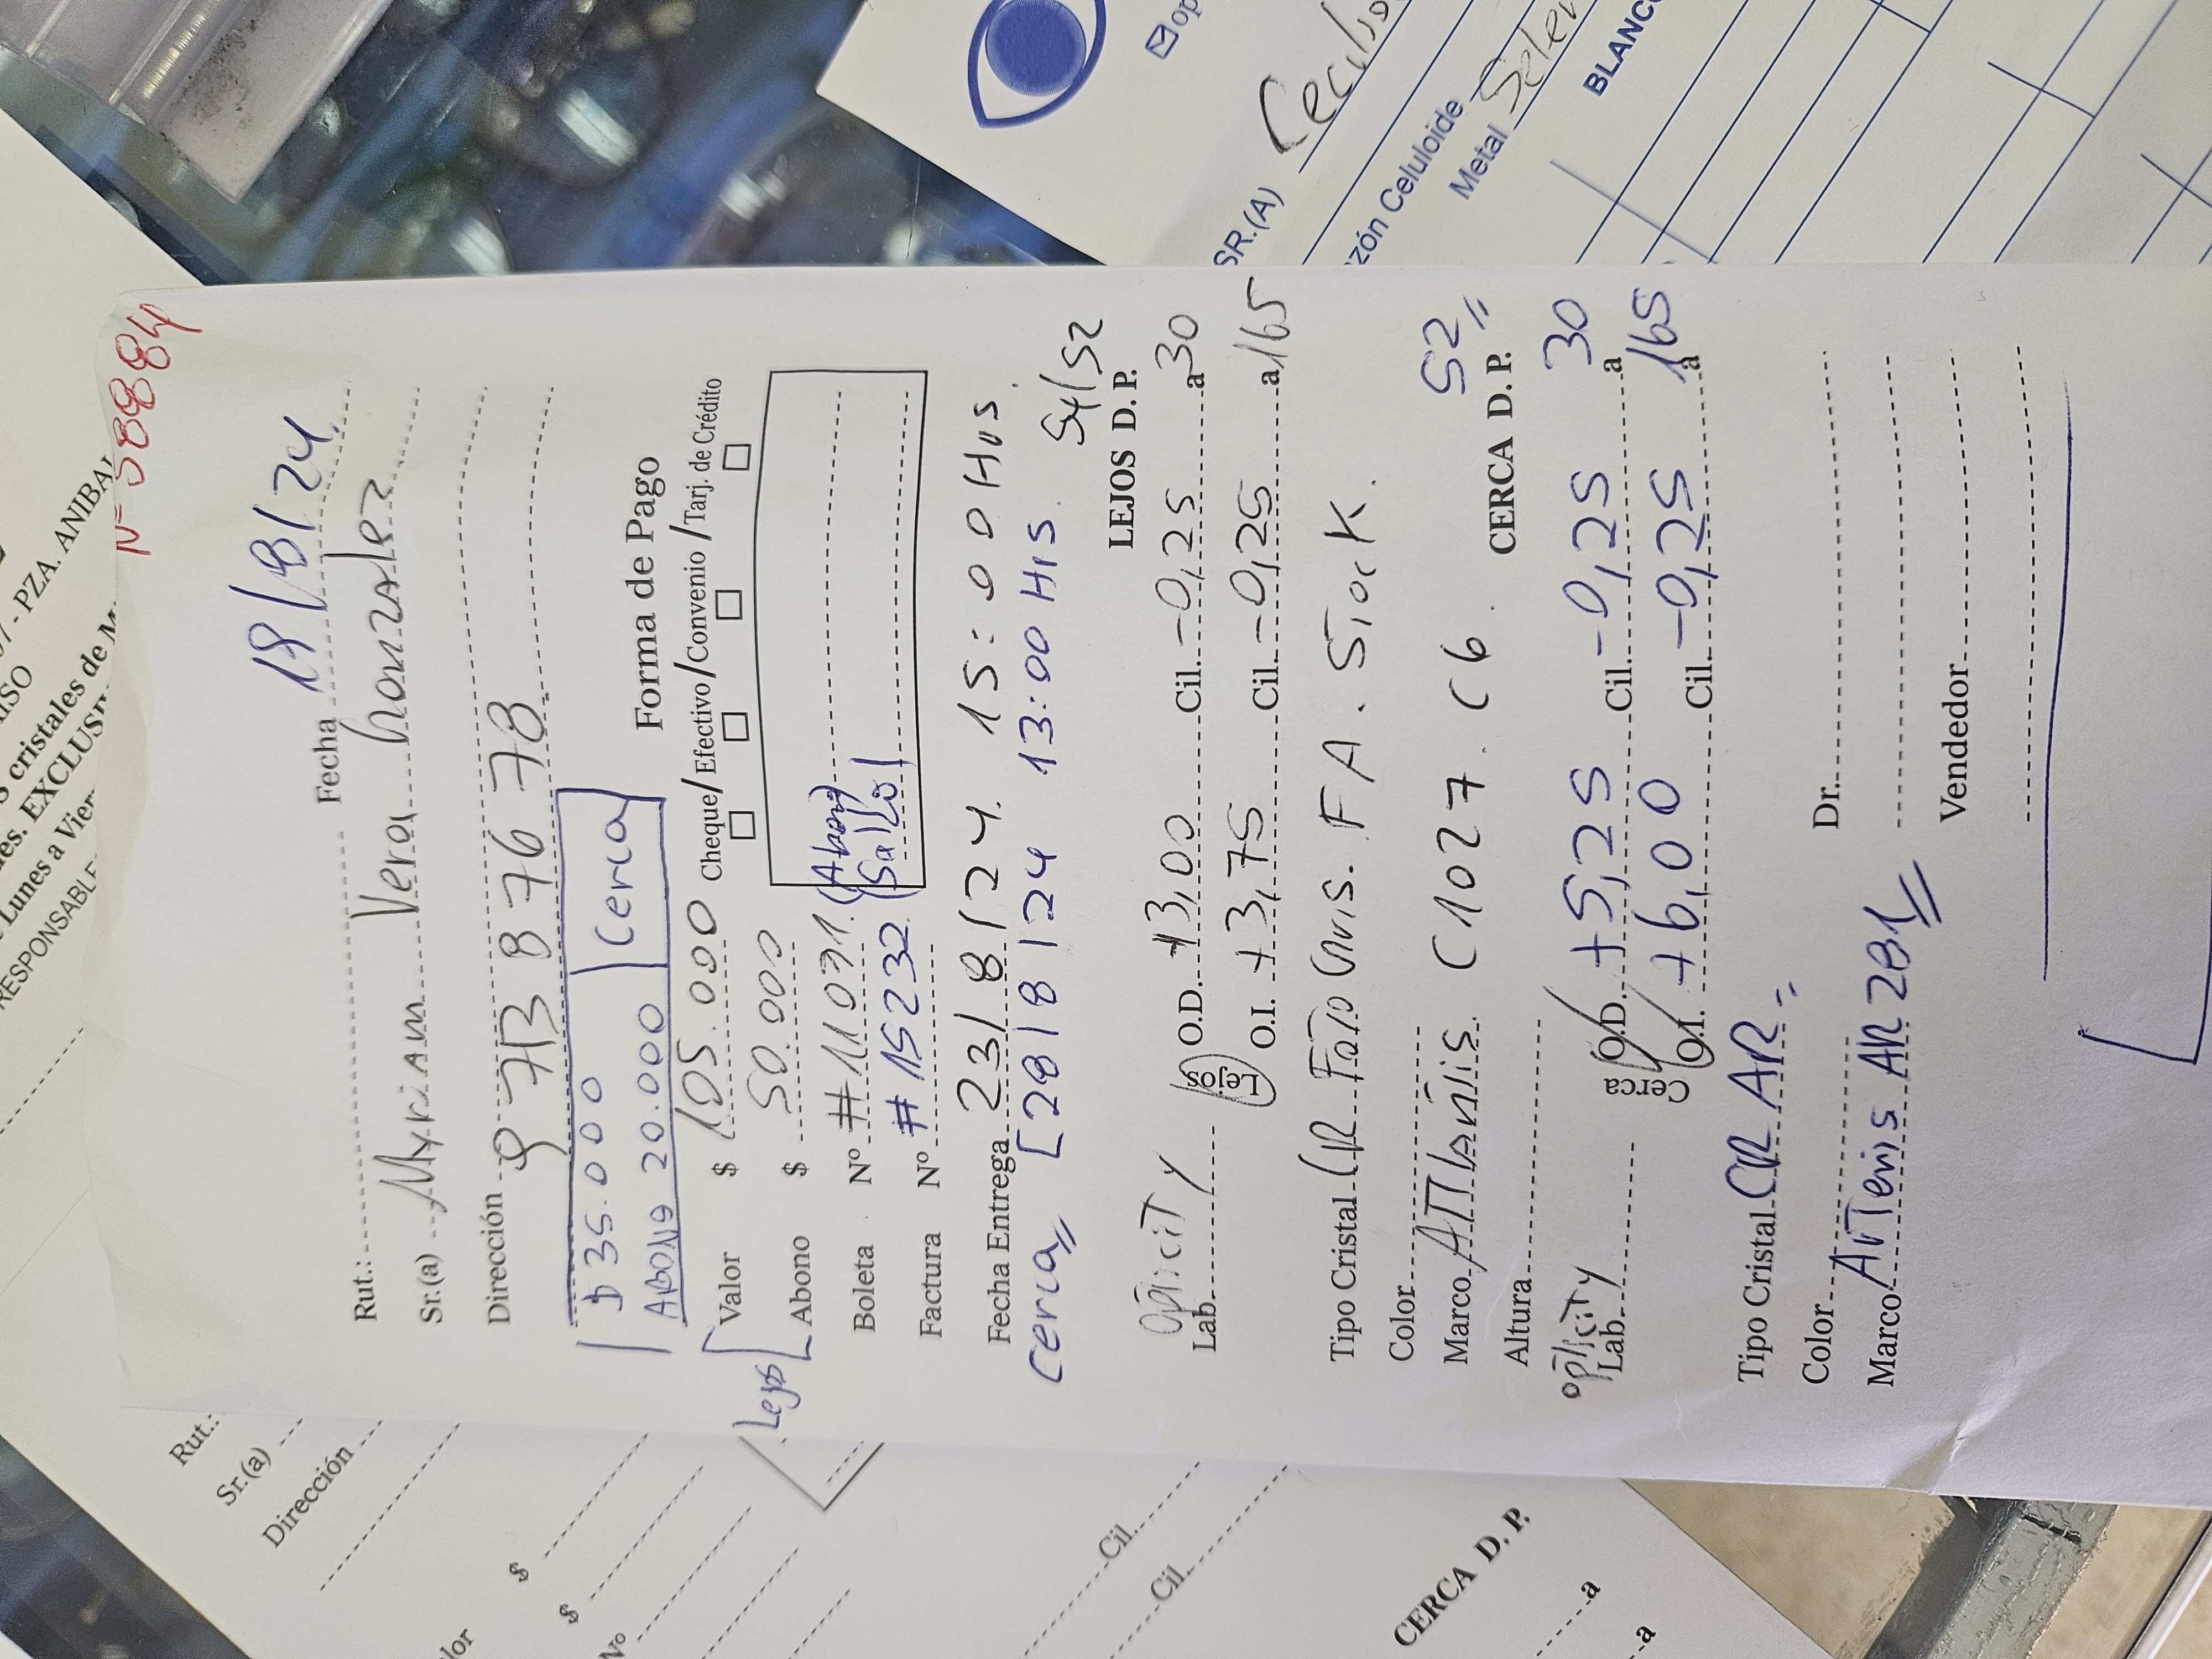 / - PZA. ANIBAL
cristales de
EXCLUSIV
Lunes a Vier
RESPONSABLE
Nº 58884
Rut.:
Sr.(a)
Dirección
$
$
Nº
Cil.
Cil.
CERCA D. P.
a
a
Fecha 19/8/24
Rut.:
Sr.(a) Myriam Vera Gonzalez
Dirección
9 713 876 78
$ 35.000 Cerca
ABONO 20.000
Forma de Pago
Cheque / Efectivo / Convenio / Tarj. de Crédito
Lejos
Valor $ 105.000
Abono $ 50.000
Boleta Nº #11071. (Abono)
Factura Nº #15232. (Saldo)
Fecha Entrega 23/8/24. 15:00 Hrs.
Cerca [28/8/24 13:00 Hrs.
54/52
LEJOS D. P.
Lab. Opticity
Lejos
O.D. +3,00 Cil. -0,25 a 30
O.I. +3,75 Cil. -0,25 a 165
Tipo Cristal CR Foto Gris. FA. Stock.
Color
Marco Attlantis. C1027. C6.
52
CERCA D. P.
Altura
Lab. Opticity
Cerca
O.D. +5,25 Cil. -0,25 a 30
O.I. +6,00 Cil. -0,25 a 165
Tipo Cristal CR AR
Color
Marco Artemis AR 281
Dr.
Vendedor
SR.(A)
zón Celuloide
Metal
BLANC